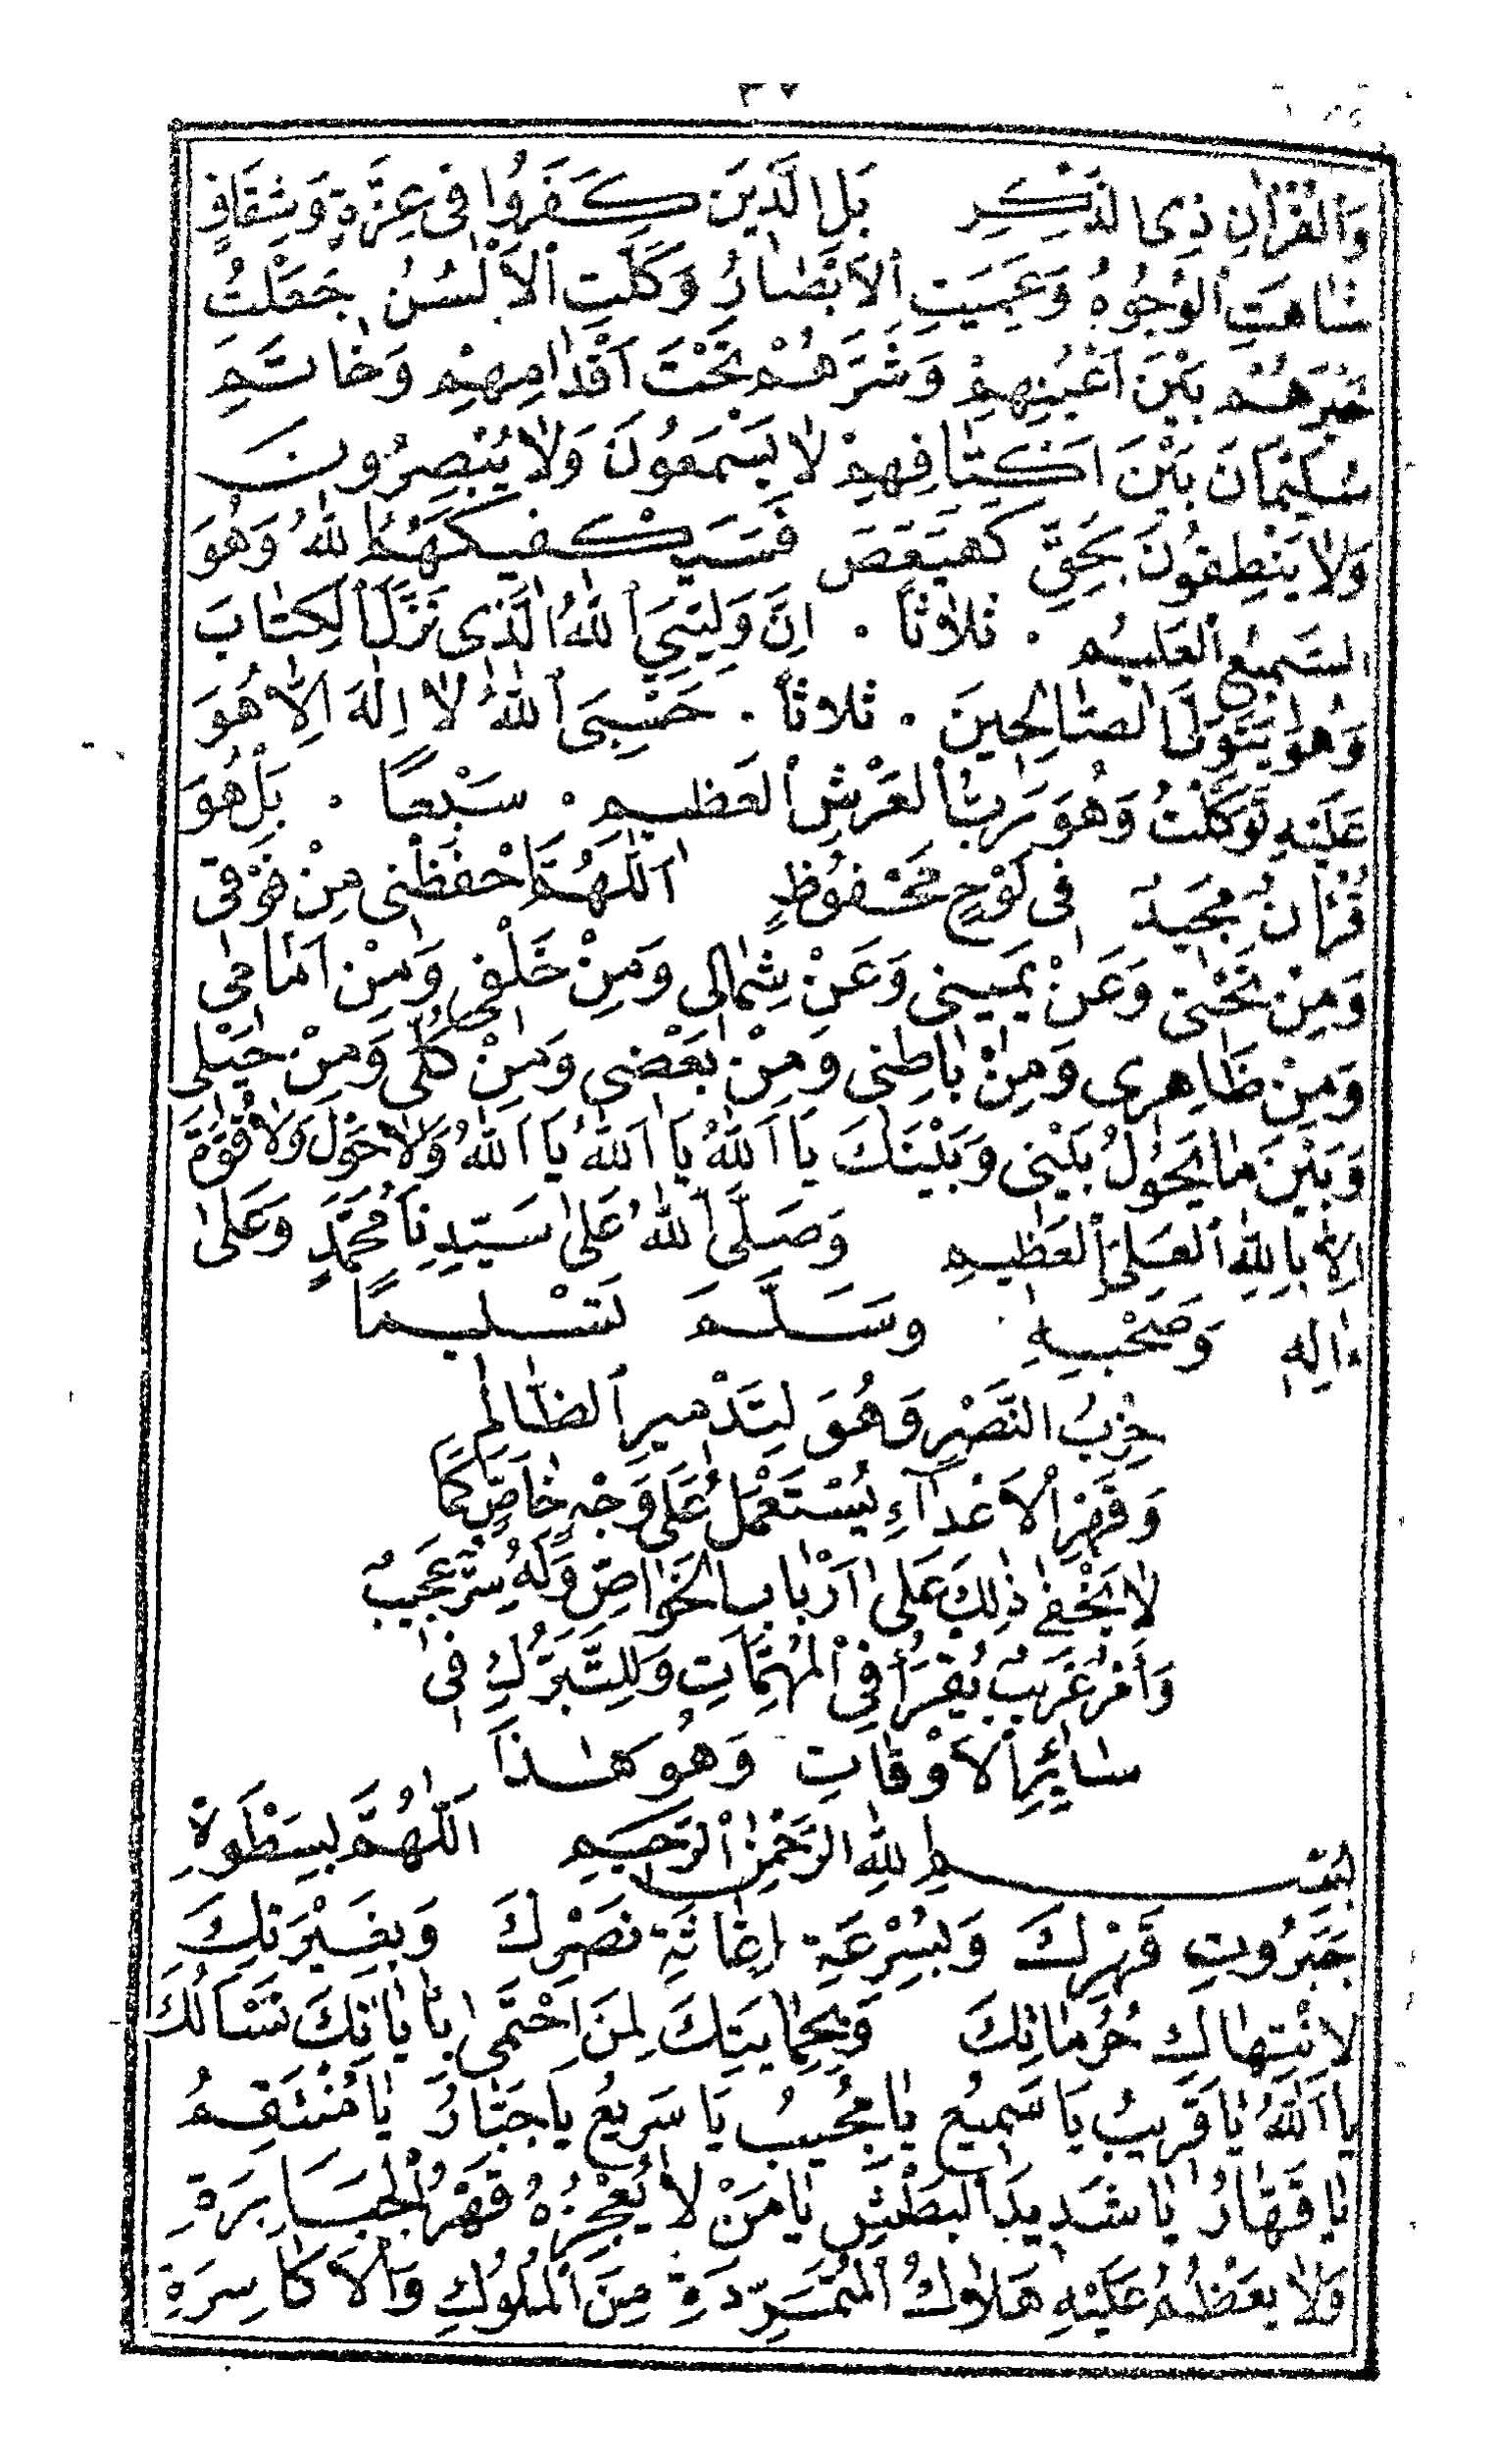 وَالْقُرْاٰنِ ذِى الذِّكْرِ بَلِ الَّذِينَ كَفَرُوا فِى عِزَّةٍ وَشِقَاقٍ
شَاهَتِ الْوُجُوهُ وَعَمِيَتِ الْأَبْصَارُ وَكَلَّتِ الْأَلْسُنُ جَعَلْتُ
خَيْرَهُمْ بَيْنَ أَعْيُنِهِمْ وَشَرَّهُمْ تَحْتَ أَقْدَامِهِمْ وَخَاتَمِ
سُلَيْمَانَ بَيْنَ أَكْتَافِهِمْ لَا يَسْمَعُونَ وَلَا يُبْصِرُونَ
وَلَا يَنْطِقُونَ بِحَقِّ كهيعص فَسَيَكْفِيكَهُمُ اللهُ وَهُوَ
السَّمِيعُ الْعَلِيمُ . ثَلَاثًا . إِنَّ وَلِيِّيَ اللهُ الَّذِى نَزَّلَ الْكِتَابَ
وَهُوَ يَتَوَلَّى الصَّالِحِينَ . ثَلَاثًا . حَسْبِىَ اللهُ لَا إِلٰهَ إِلَّا هُوَ
عَلَيْهِ تَوَكَّلْتُ وَهُوَ رَبُّ الْعَرْشِ الْعَظِيمِ . سَبْعًا . بَلْ هُوَ
قُرْاٰنٌ مَجِيدٌ فِى لَوْحٍ مَحْفُوظٍ اَللّٰهُمَّ احْفَظْنِى مِنْ فَوْقِى
وَمِنْ تَحْتِى وَعَنْ يَمِينِى وَعَنْ شِمَالِى وَمِنْ خَلْفِى وَمِنْ أَمَامِى
وَمِنْ ظَاهِرِى وَمِنْ بَاطِنِى وَمِنْ بَعْضِى وَمِنْ كُلِّى وَمِنْ حَيْلِى
وَبَيْنَ مَا يَحُولُ بَيْنِى وَبَيْنَكَ يَا اَللهُ يَا اَللهُ يَا اَللهُ وَلَا حَوْلَ وَلَا قُوَّةَ
إِلَّا بِاللهِ الْعَلِىِّ الْعَظِيمِ وَصَلَّى اللهُ عَلَى سَيِّدِنَا مُحَمَّدٍ وَعَلَى
اٰلِهِ وَصَحْبِهِ وَسَلَّمَ تَسْلِيمًا
حِزْبُ النَّصْرِ وَهُوَ لِتَدْمِيرِ الظَّالِمِ
وَقَهْرِ الْأَعْدَآءِ يُسْتَعْمَلُ عَلَى وَجْهٍ خَاصٍّ كَمَا
لَا يَخْفَى ذٰلِكَ عَلَى أَرْبَابِ الْخَوَاصِّ وَلَهُ سِرٌّ عَجِيبٌ
وَأَمْرٌ غَرِيبٌ يُقْرَأُ فِى الْمُهِمَّاتِ وَلِلتَّبَرُّكِ فِى
سَائِرِ الْأَوْقَاتِ وَهُوَ هٰذَا
بِسْمِ اللهِ الرَّحْمٰنِ الرَّحِيمِ اَللّٰهُمَّ بِسَطْوَةِ
جَبَرُوتِ قَهْرِكَ وَبِسُرْعَةِ إِغَاثَةِ نَصْرِكَ وَبِغَيْرَتِكَ
لِانْتِهَاكِ حُرُمَاتِكَ وَبِحِمَايَتِكَ لِمَنِ احْتَمَى بِاٰيَاتِكَ نَسْأَلُكَ
يَا اَللهُ يَا قَرِيبُ يَا سَمِيعُ يَا مُجِيبُ يَا سَرِيعُ يَا جَبَّارُ يَا مُنْتَقِمُ
يَا قَهَّارُ يَا شَدِيدَ الْبَطْشِ يَا مَنْ لَا يُعْجِزُهُ قَهْرُ الْجَبَابِرَةِ
وَلَا يَعْظُمُ عَلَيْهِ هَلَاكُ الْمُتَمَرِّدَةِ مِنَ الْمُلُوكِ وَالْأَكَاسِرَةِ